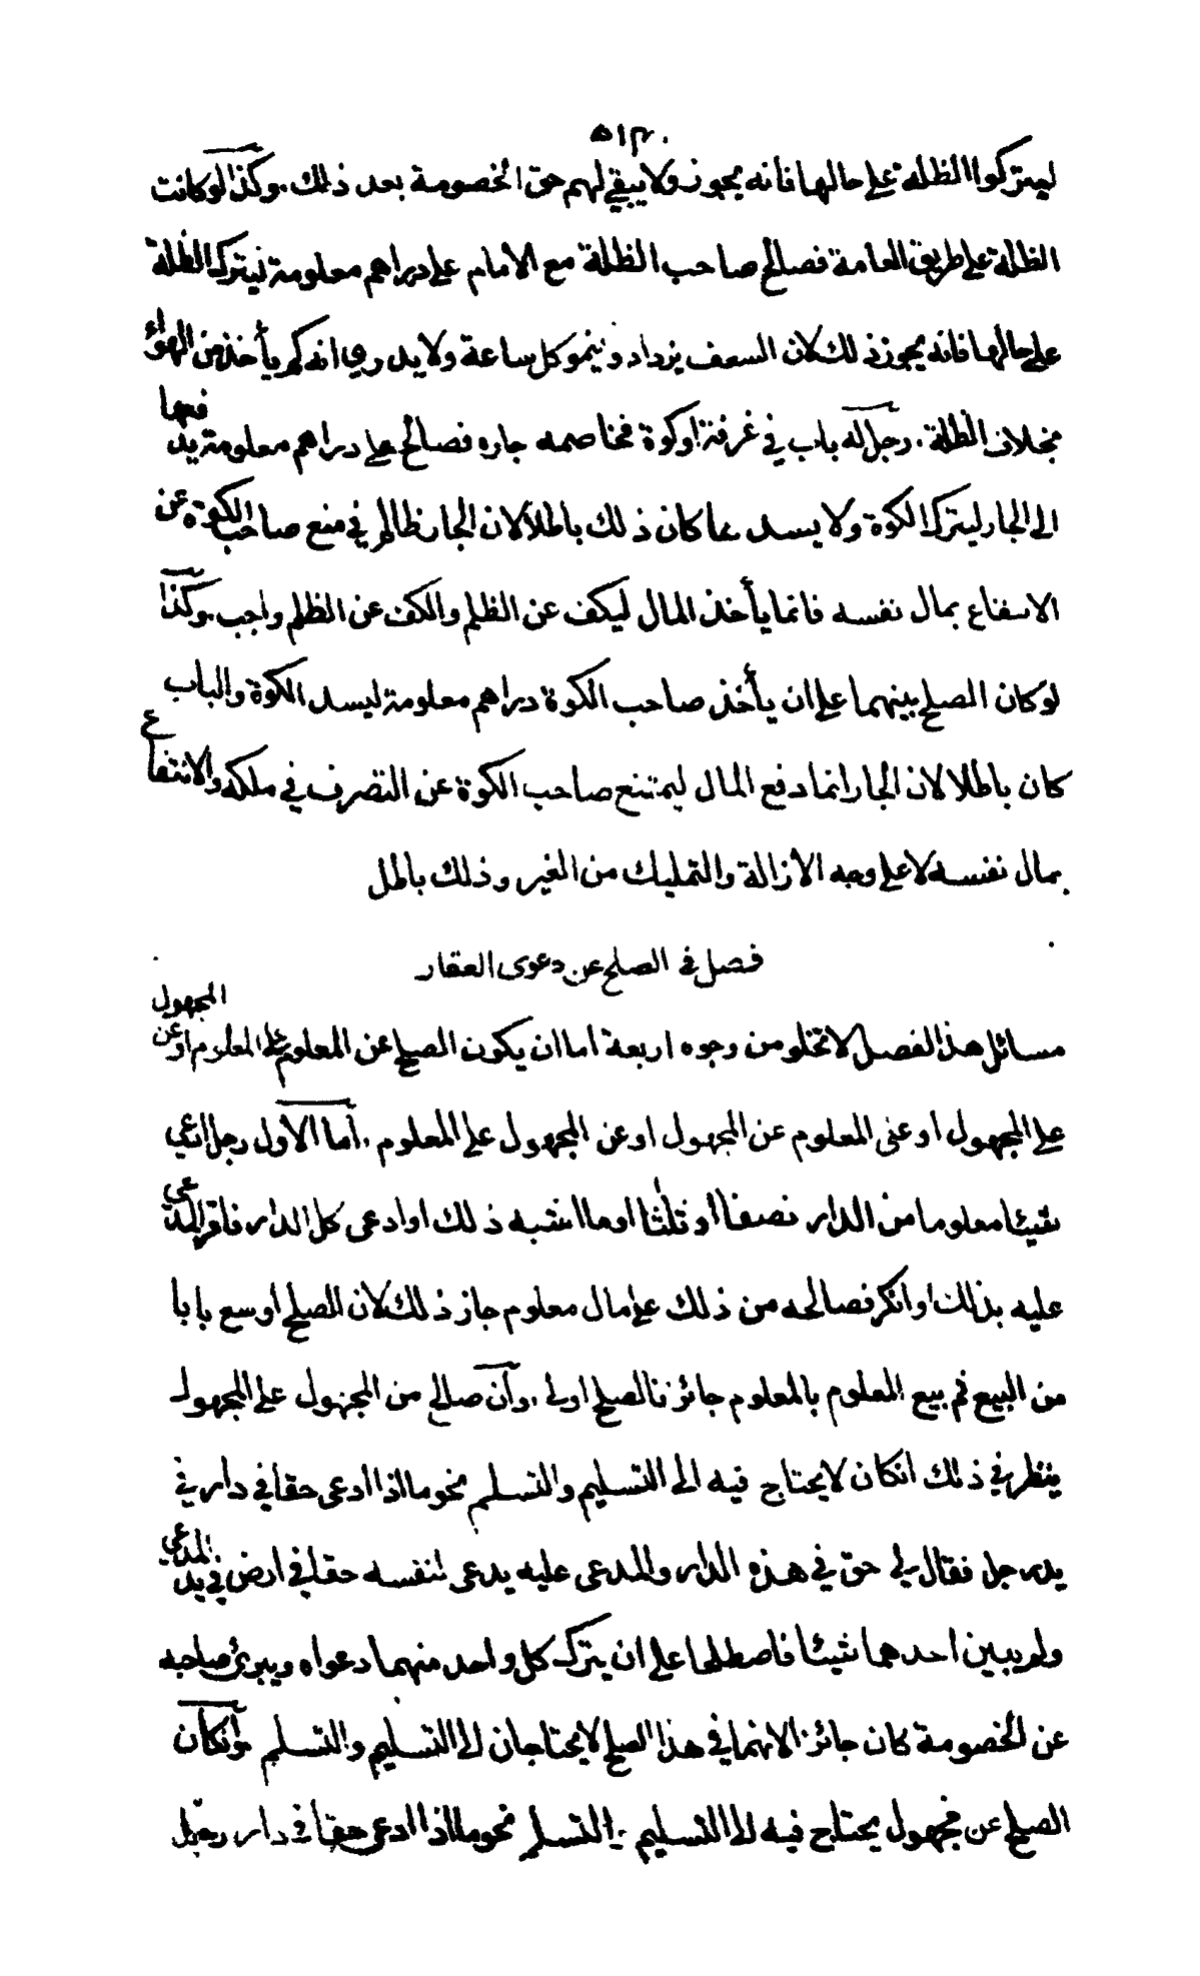 ٥١٣
ليتركوا الظلة على حالها فانه يجوز ولا يبقي لهم حق الخصومة بعد ذلك. وكذا لو كانت
الظلة على طريق العامة فصالح صاحب الظلة مع الامام على دراهم معلومة ليترك الظلة
على حالها فانه يجوز ذلك لان السعف يزداد وينمو كل ساعة ولا يدري انه كم يأخذ من الهواء
بخلاف الظلة. رجل له باب في غرفة اوكوة فخاصمه جاره فصالح على دراهم معلومة يدفعها
الى الجار ليترك الكوة ولا يسد بما كان ذلك باطلا لان الجار ظالم في منع صاحب الكوة عن
الانتفاع بمال نفسه فانما يأخذ المال ليكف عن الظلم والكف عن الظلم واجب. وكذا
لو كان الصلح بينهما على ان يأخذ صاحب الكوة دراهم معلومة ليسد الكوة والباب
كان باطلا لان الجار انما دفع المال ليمتنع صاحب الكوة عن التصرف في ملكه والانتفاع
بمال نفسه لا على وجه الازالة والتمليك من الغير وذلك باطل
فصل في الصلح عن دعوى العقار
مسائل هذا الفصل لا تخلو من وجوه اربعة اما ان يكون الصلح عن المعلوم على المعلوم او عن المجهول
على المجهول او عن المعلوم عن المجهول او عن المجهول على المعلوم. أما الاول رجل ادعى
شيئا معلوما من الدار نصفا أو ثلثا او ما اشبه ذلك او ادعى كل الدار فاقر المدعى
عليه بذلك او انكر فصالحه من ذلك على مال معلوم جاز ذلك لان الصلح اوسع بابا
من البيع ثم بيع المعلوم بالمعلوم جائز فالصلح اولى. وان صالح من المجهول على المجهول
ينظر في ذلك انكان لا يحتاج فيه الى التسليم والتسلم نحو ما اذا ادعى حقا في دار في
يد رجل فقال لي حق في هذه الدار والمدعى عليه يدعى لنفسه حقا في ارض في يد المدعي
ولم يبين احدهما شيئا فاصطلحا على ان يترك كل واحد منهما دعواه ويبرئ صاحبه
عن الخصومة كان جائزا لانهما في هذا الصلح لا يحتاجان الى التسليم والتسلم وانكان
الصلح عن مجهول يحتاج فيه الى التسليم والتسلم نحو ما اذا ادعى حقا في دار رجل